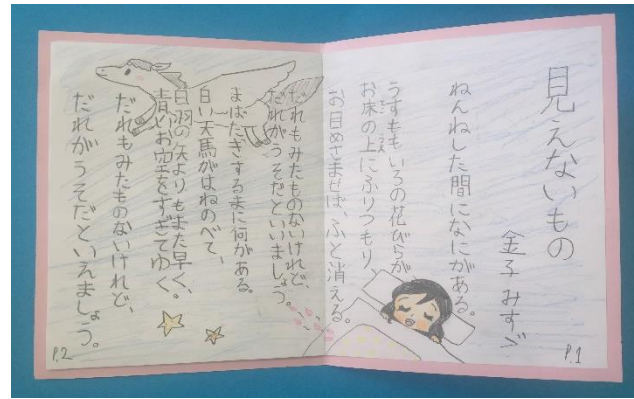 見えないもの
金子みすゞ
ねんねした間になにがある。
うすももいろの花びらが
お床の上にふりつもり、
お目めさませば、ふと消える。
P.1
だれもみたものないけれど、
だれがうそだといいましょう。
まばたきするまに何がある。
白い天馬がはねのべて、
白羽の矢よりもまだ早く、
青いお空をすぎてゆく。
だれもみたものないけれど、
だれがうそだといえましょう。
P.2